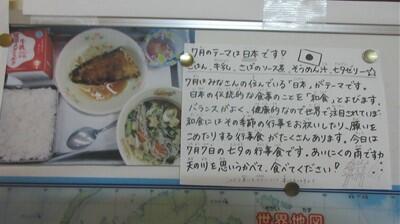 7月のテーマは日本です!
ごはん、牛乳、さばのソース煮、そうめん汁、七夕ゼリー☆
7月はみなさんの住んでいる「日本」がテーマです。
日本の伝統的な食事のことを「和食」とよびます。
バランスがよく、健康的なので世界で注目されています。
和食にはその季節の行事をお祝いしたり、願いを
こめたりする行事食がたくさんあります。今日は
7月7日の七夕の行事食です。あいにくの雨ですが
天の川を思いうかべて、食べてください!
世界地図